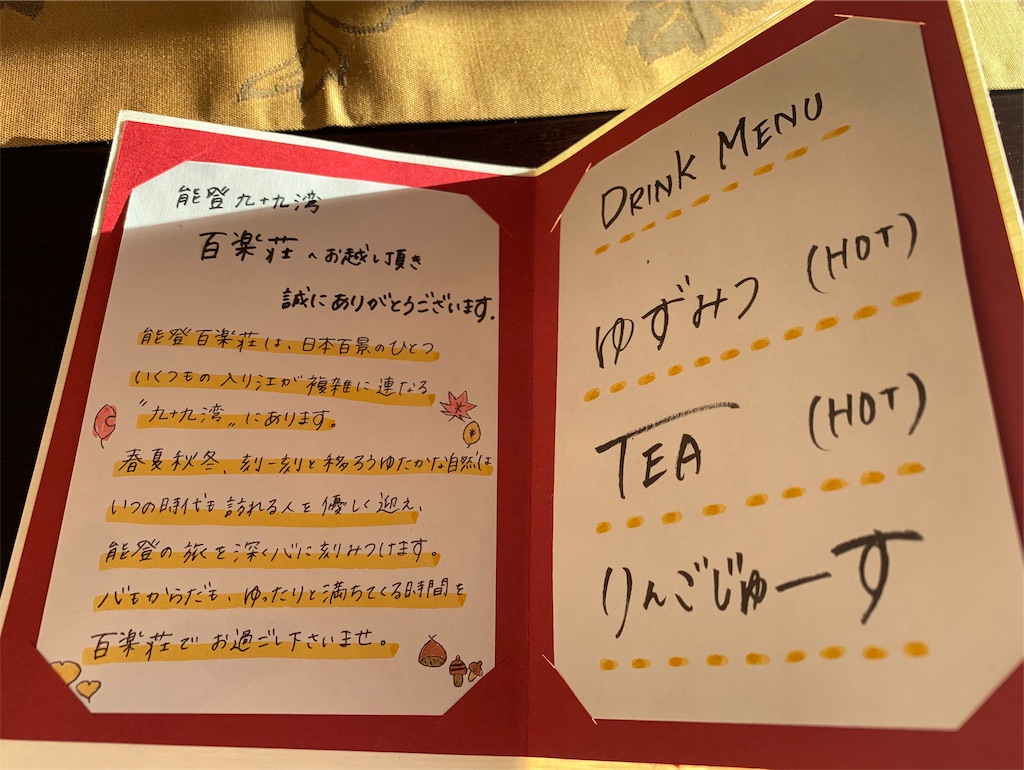 能登九十九湾
百楽荘へお越し頂き
誠にありがとうございます.
能登百楽荘は、日本百景のひとつ
いくつもの入り江が複雑に連なる
"九十九湾"にあります。
春夏秋冬、刻一刻と移ろうゆたかな自然は
いつの時代も訪れる人を優しく迎え、
能登の旅を深く心に刻みつけます。
心もからだも、ゆったりと満ちてくる時間を
百楽荘でお過ごし下さいませ。
DRINK MENU
ゆずみつ (HOT)
TEA (HOT)
りんごじゅーす